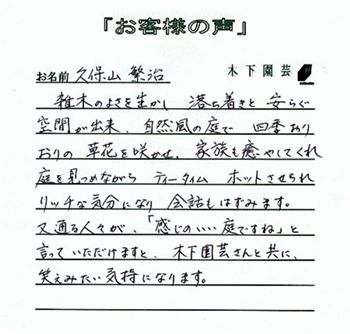 「お客様の声」
お名前 久保山 繁治 木下園芸
雑木のよさを生かし 落ち着きと 安らぐ
空間が出来、自然風の庭で 四季おり
おりの 草花を咲かせ、家族も癒やしてくれ
庭を見つめながら ティータイム ホットさせられ
リッチな気分になり 会話もはずみます。
又通る人々が、「感じのいい庭ですね」と
言っていただけますと、木下園芸さんと共に、
笑えみたい気持になります。